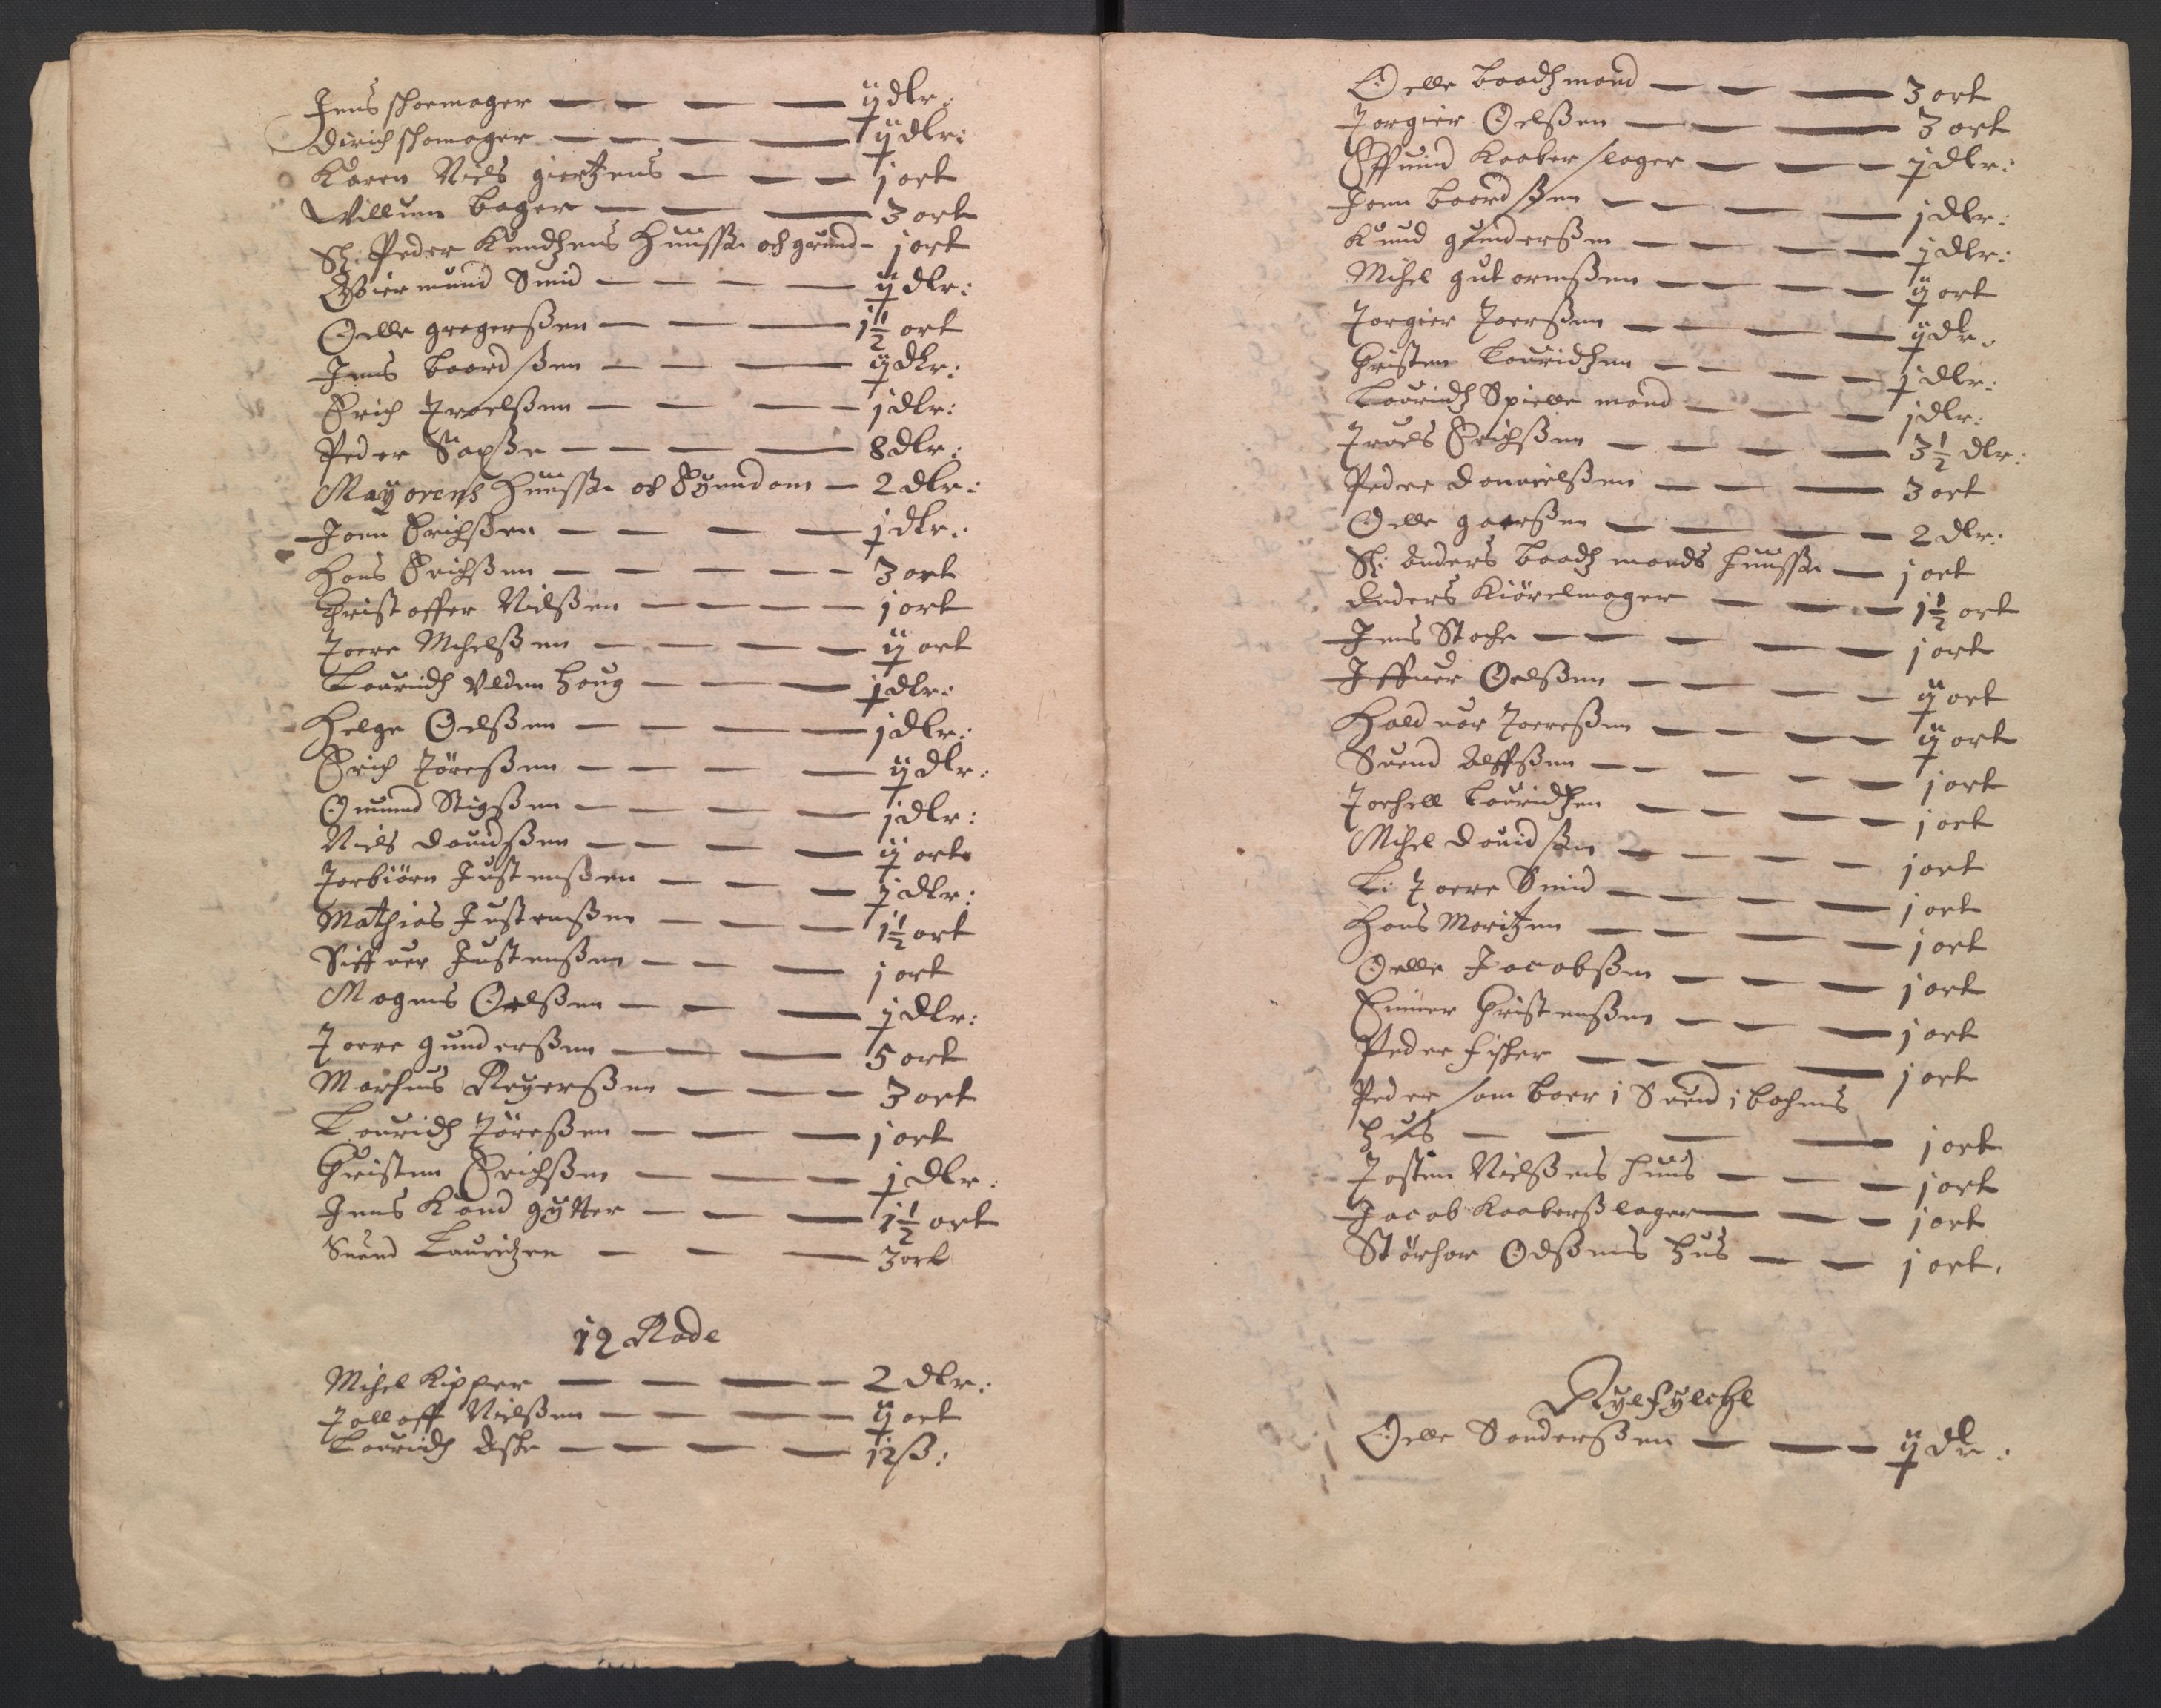 Jens skoemager — — — — ij dlr:
Dirich skomager — — — — ij dlr:
Karen Niels giertzens — — — j ort
Willum bager — — — 3 ort
Sl: Peder Knudzens Huusse och grund - j ort
Giermund Smid — — — — ij dlr:
Oelle gregerßen — — — 1½ ort
Jens baardßen — — — ij dlr:
Erich Troelßen — — — — j dlr:
Peder Saxße — — — — 8 dlr:
Mayorens Huusse och Eyendom — 2 dlr:
Joen Erichßen — — — — j dlr:
Hans Erichßen — — — — — 3 ort
Christoffer Nielßen — — — — j ort
Toere Michelßen — — — — ij ort
Lauridz Uldenhoug — — — j dlr:
Helge Oelßen — — — — j dlr:
Erich Töreßen — — — — ij dlr:
Omund Stigßen — — — — j dlr:
Niels Dauidßen — — — — ij ort
Torbiörn Justenßen — — — j dlr:
Mathias Justenßen — — — 1½ ort
Siffuer Justenßen — — — j ort
Mogens Oelßen — — — j dlr:
Toere gunderßen — — — 5 ort
Marhus Reyerßen — — — 3 ort
Lauridz Töreßen — — — j ort
Christen Erichßen — — — j dlr:
Jens Kandgytter — — — 1½ ort
Suend Lauritzen — — — 3 ort
12 Rode
Michel Kipper — — — — 2 dlr:
Tolloff Nielßen — — — — ij ort
Lauridz Aske — — — — 12 ß:
Oelle baadzmand — — — 3 ort
Jorgier Oelßen — — — 3 ort
Effuind Kaaberslager — — — j dlr:
Joen baardßen — — — — j dlr:
Knud gunderßen — — — — j dlr:
Michel gutormßen — — — — ij ort
Torgier Toerßen — — — — ij dlr.
Christen Lauridzen — — — — j dlr:
Lauridz Spillemand — — — j dlr:
Troels Erichßen — — — — 3½ dlr:
Peder Danielßen — — — 3 ort
Oelle gaarßen — — — — 2 dlr:
Sl: Anders baadzmands huusse — j ort
Anders Kiörelmager — — — 1½ ort
Jens Stoche — — — — — j ort
Iffuer Oelßen — — — — ij ort
Halduor Toereßen — — — — ij ort
Suend Alffßen — — — — — j ort
Torkell Lauridzen — — — — j ort
Michel Dauidßen — — — — j ort
L: Toere Smid — — — — j ort
Hans Moritzen — — — — j ort
Oelle Jacobßen — — — j ort
Einuer Christenßen — — — j ort
Peder fisker — — — — j ort
Peder som boer i Suend i bachens
Hus — — — — j ort
Tosten Nielßens huus — — — j ort
Jacob Kaaberßlager — — — j ort
Störkor Oelßens Hus — — j ort.
Ryefylche
Oelle Sanderßen — — — ij dlr: